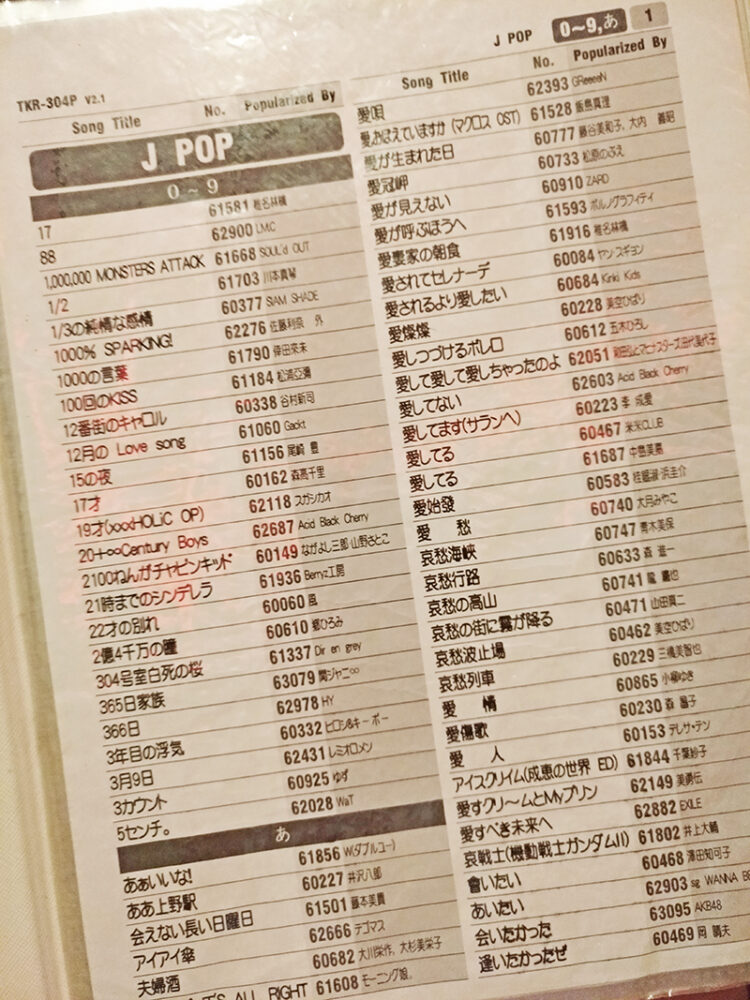 J POP 0~9,あ 1
TKR-304P V2.1
Song Title No. Popularized By
J POP
0 ~ 9
17 61581 椎名林檎
88 62900 LM.C
1,000,000 MONSTERS ATTACK 61668 SOUL'd OUT
1/2 61703 川本真琴
1/3の純情な感情 60377 SIAM SHADE
1000% SPARKING! 62276 佐藤利奈 外
1000の言葉 61790 倖田來未
100回のKISS 61184 松浦亞彌
12番街のキャロル 60338 谷村新司
12月の Love song 61060 Gackt
15の夜 61156 尾崎 豊
17才 60162 森高千里
19才(xxxHOLiC OP) 62118 スガシカオ
20+∞Century Boys 62687 Acid Black Cherry
2100ねんがチャピンキッド 60149 ながよし三郎·山野さとこ
21時までのシンデレラ 61936 Berryz工房
22才の別れ 60060 風
2億4千万の瞳 60610 郷ひろみ
304号室白死の桜 61337 Dir en grey
365日家族 63079 関ジャニ∞
366日 62978 HY
3年目の浮気 60332 ヒロシ&キーボー
3月9日 62431 レミオロメン
3カウント 60925 ゆず
5センチ。 62028 WaT
あ
あぁいいな! 61856 W(ダブルユー)
ああ上野駅 60227 井沢八郎
会えない長い日曜日 61501 藤本美貴
アイアイ傘 62666 テゴマス
夫婦酒 60682 大川栄作, 大杉美栄子
IT'S ALL RIGHT 61608 モーニング娘。
Song Title No. Popularized By
愛唄 62393 GReeeeN
愛おぼえていますか (マクロス OST) 61528 飯島真理
愛が生まれた日 60777 藤谷美和子, 大内 義昭
愛冠岬 60733 松原のぶえ
愛が見えない 60910 ZARD
愛が呼ぶほうへ 61593 ポルノグラフィティ
愛妻家の朝食 61916 椎名林檎
愛されてセレナーデ 60084 ヤン·スギョン
愛されるより愛したい 60684 Kinki Kids
愛燦燦 60228 美空ひばり
愛しつづけるボレロ 60612 五木ひろし
愛して愛して愛しちゃったのよ 62051
愛してない 62603 Acid Black Cherry
愛してます(サランヘ) 60223 李 成愛
愛してる 60467 米米CLUB
愛してる 61687 中島美嘉
愛始發 60583
愛 愁 60740 大月みやこ
哀愁海峡 60747 青木美保
哀愁行路 60633 森 進一
哀愁の高山 60741
哀愁の街に霧が降る 60471 山田真二
哀愁波止場 60462 美空ひばり
哀愁列車 60229 三橋美智也
愛 情 60865 小柳ゆき
愛傷歌 60230 森 昌子
愛 人 60153 テレサ·テン
アイスクリイム(成恵の世界 ED) 61844 千葉紗子
愛すクリ〜ムとMyプリン 62149 美勇伝
愛すべき未来へ 62882 EXILE
哀戦士(機動戦士ガンダムII) 61802 井上大輔
會いたい 60468 澤田知可子
あいたい 62903 sg WANNA BE
会いたかった 63095 AKB48
逢いたかったぜ 60469 岡 晴夫